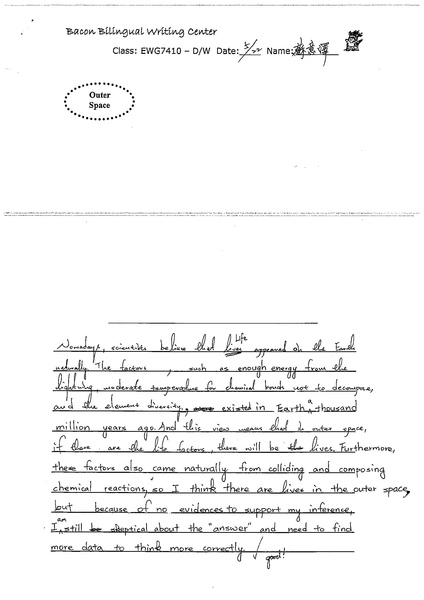 Bacon Bilingual Writing Center
Class: EWG7410 – D/W Date: 5/22 Name: 蘇意
Outer
Space
Life
Nowadays, scientists believe that lives appeared on the Earth
naturally. The factors, such as enough energy from the
lightning, moderate temperature for chemical bonds not to decompose,
and the element diversity, existed in Earth a thousand
million years ago. And this view means that in outer space,
if there are the life factors, there will be the lives. Furthermore,
these factors also came naturally from colliding and composing
chemical reactions, so I think there are lives in the outer space,
but because of no evidences to support my inference,
I am still be skeptical about the "answer" and need to find
more data to think more correctly. good!